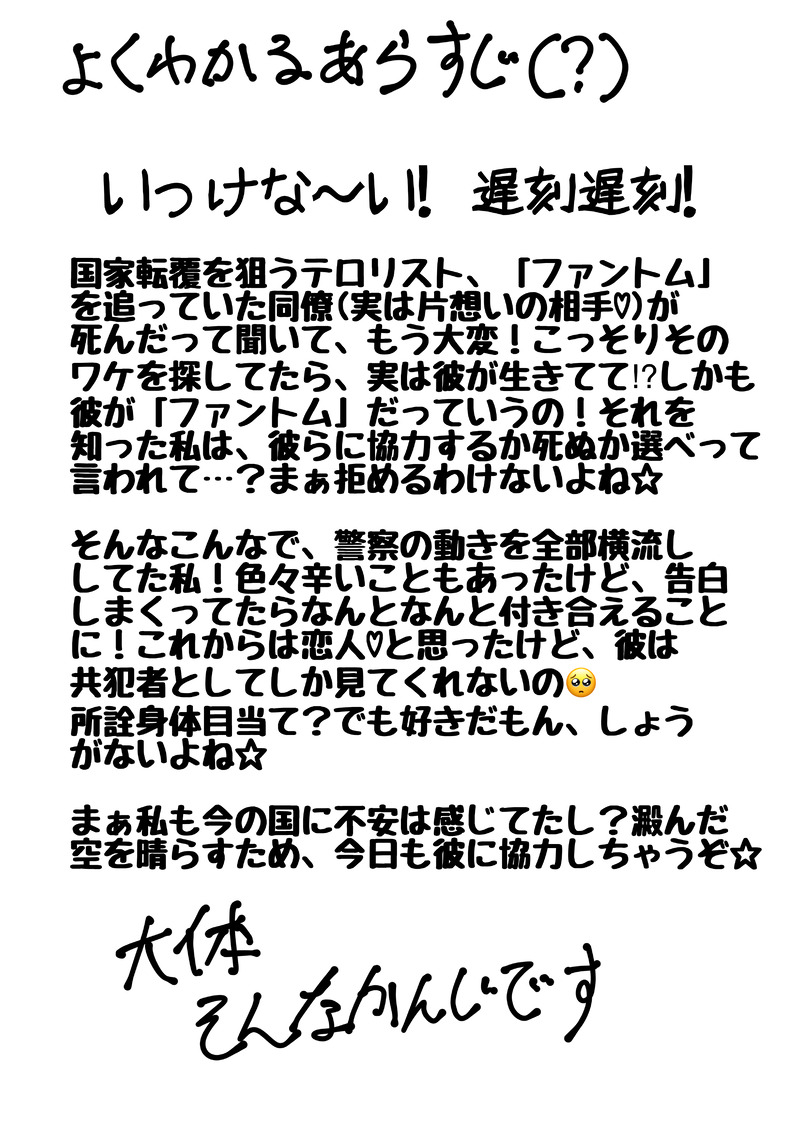 よくわかるあらすじ(?)
いっけな～い! 遅刻遅刻!
国家転覆を狙うテロリスト、「ファントム」
を追っていた同僚(実は片想いの相手♡)が
死んだって聞いて、もう大変！こっそりその
ワケを探してたら、実は彼が生きてて⁉しかも
彼が「ファントム」だっていうの！それを
知った私は、彼らに協力するか死ぬか選べって
言われて…？まぁ拒めるわけないよね☆
そんなこんなで、警察の動きを全部横流し
してた私！色々辛いこともあったけど、告白
しまくってたらなんとなんと付き合えること
に！これからは恋人♡と思ったけど、彼は
共犯者としてしか見てくれないの🥺
所詮身体目当て？でも好きだもん、しょう
がないよね☆
まぁ私も今の国に不安は感じてたし？澱んだ
空を晴らすため、今日も彼に協力しちゃうぞ☆
大体
そんなかんじです